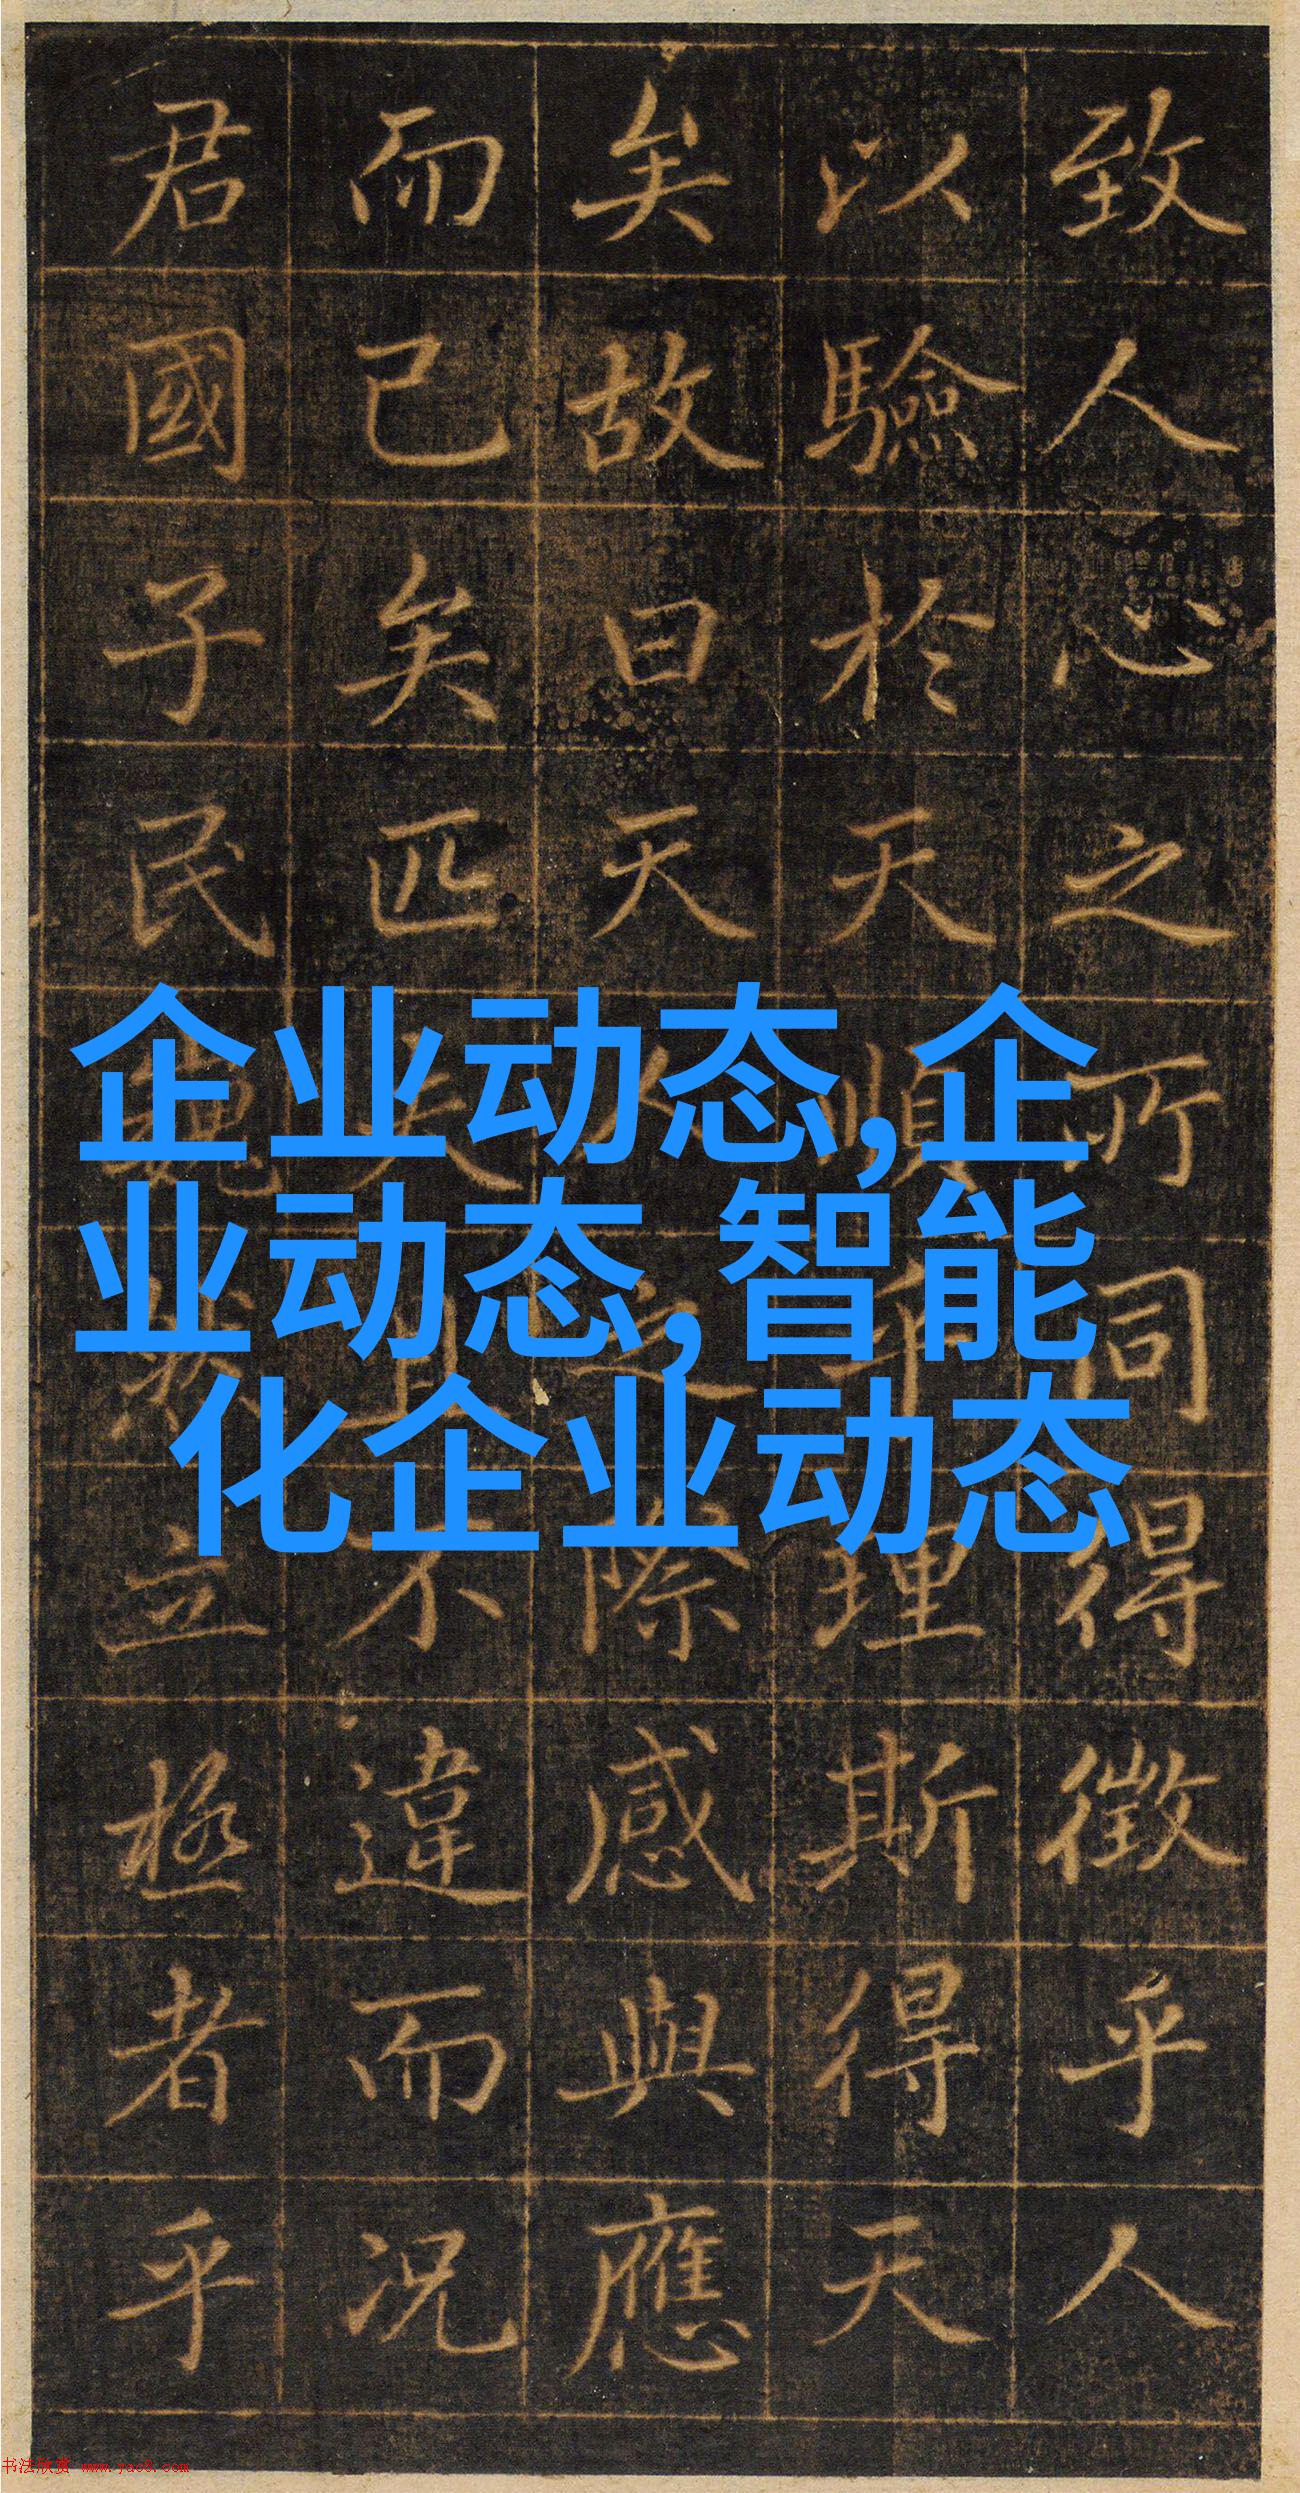 致人心之所同得徵乎人
以驗於天順乎理斯得天
矣故曰天人之際感與應
而已矣匹夫且不違而况
君國子民巍然立極者乎
企业动态,企
业动态,智能
化企业动态
书法欣赏 www.yac8.com